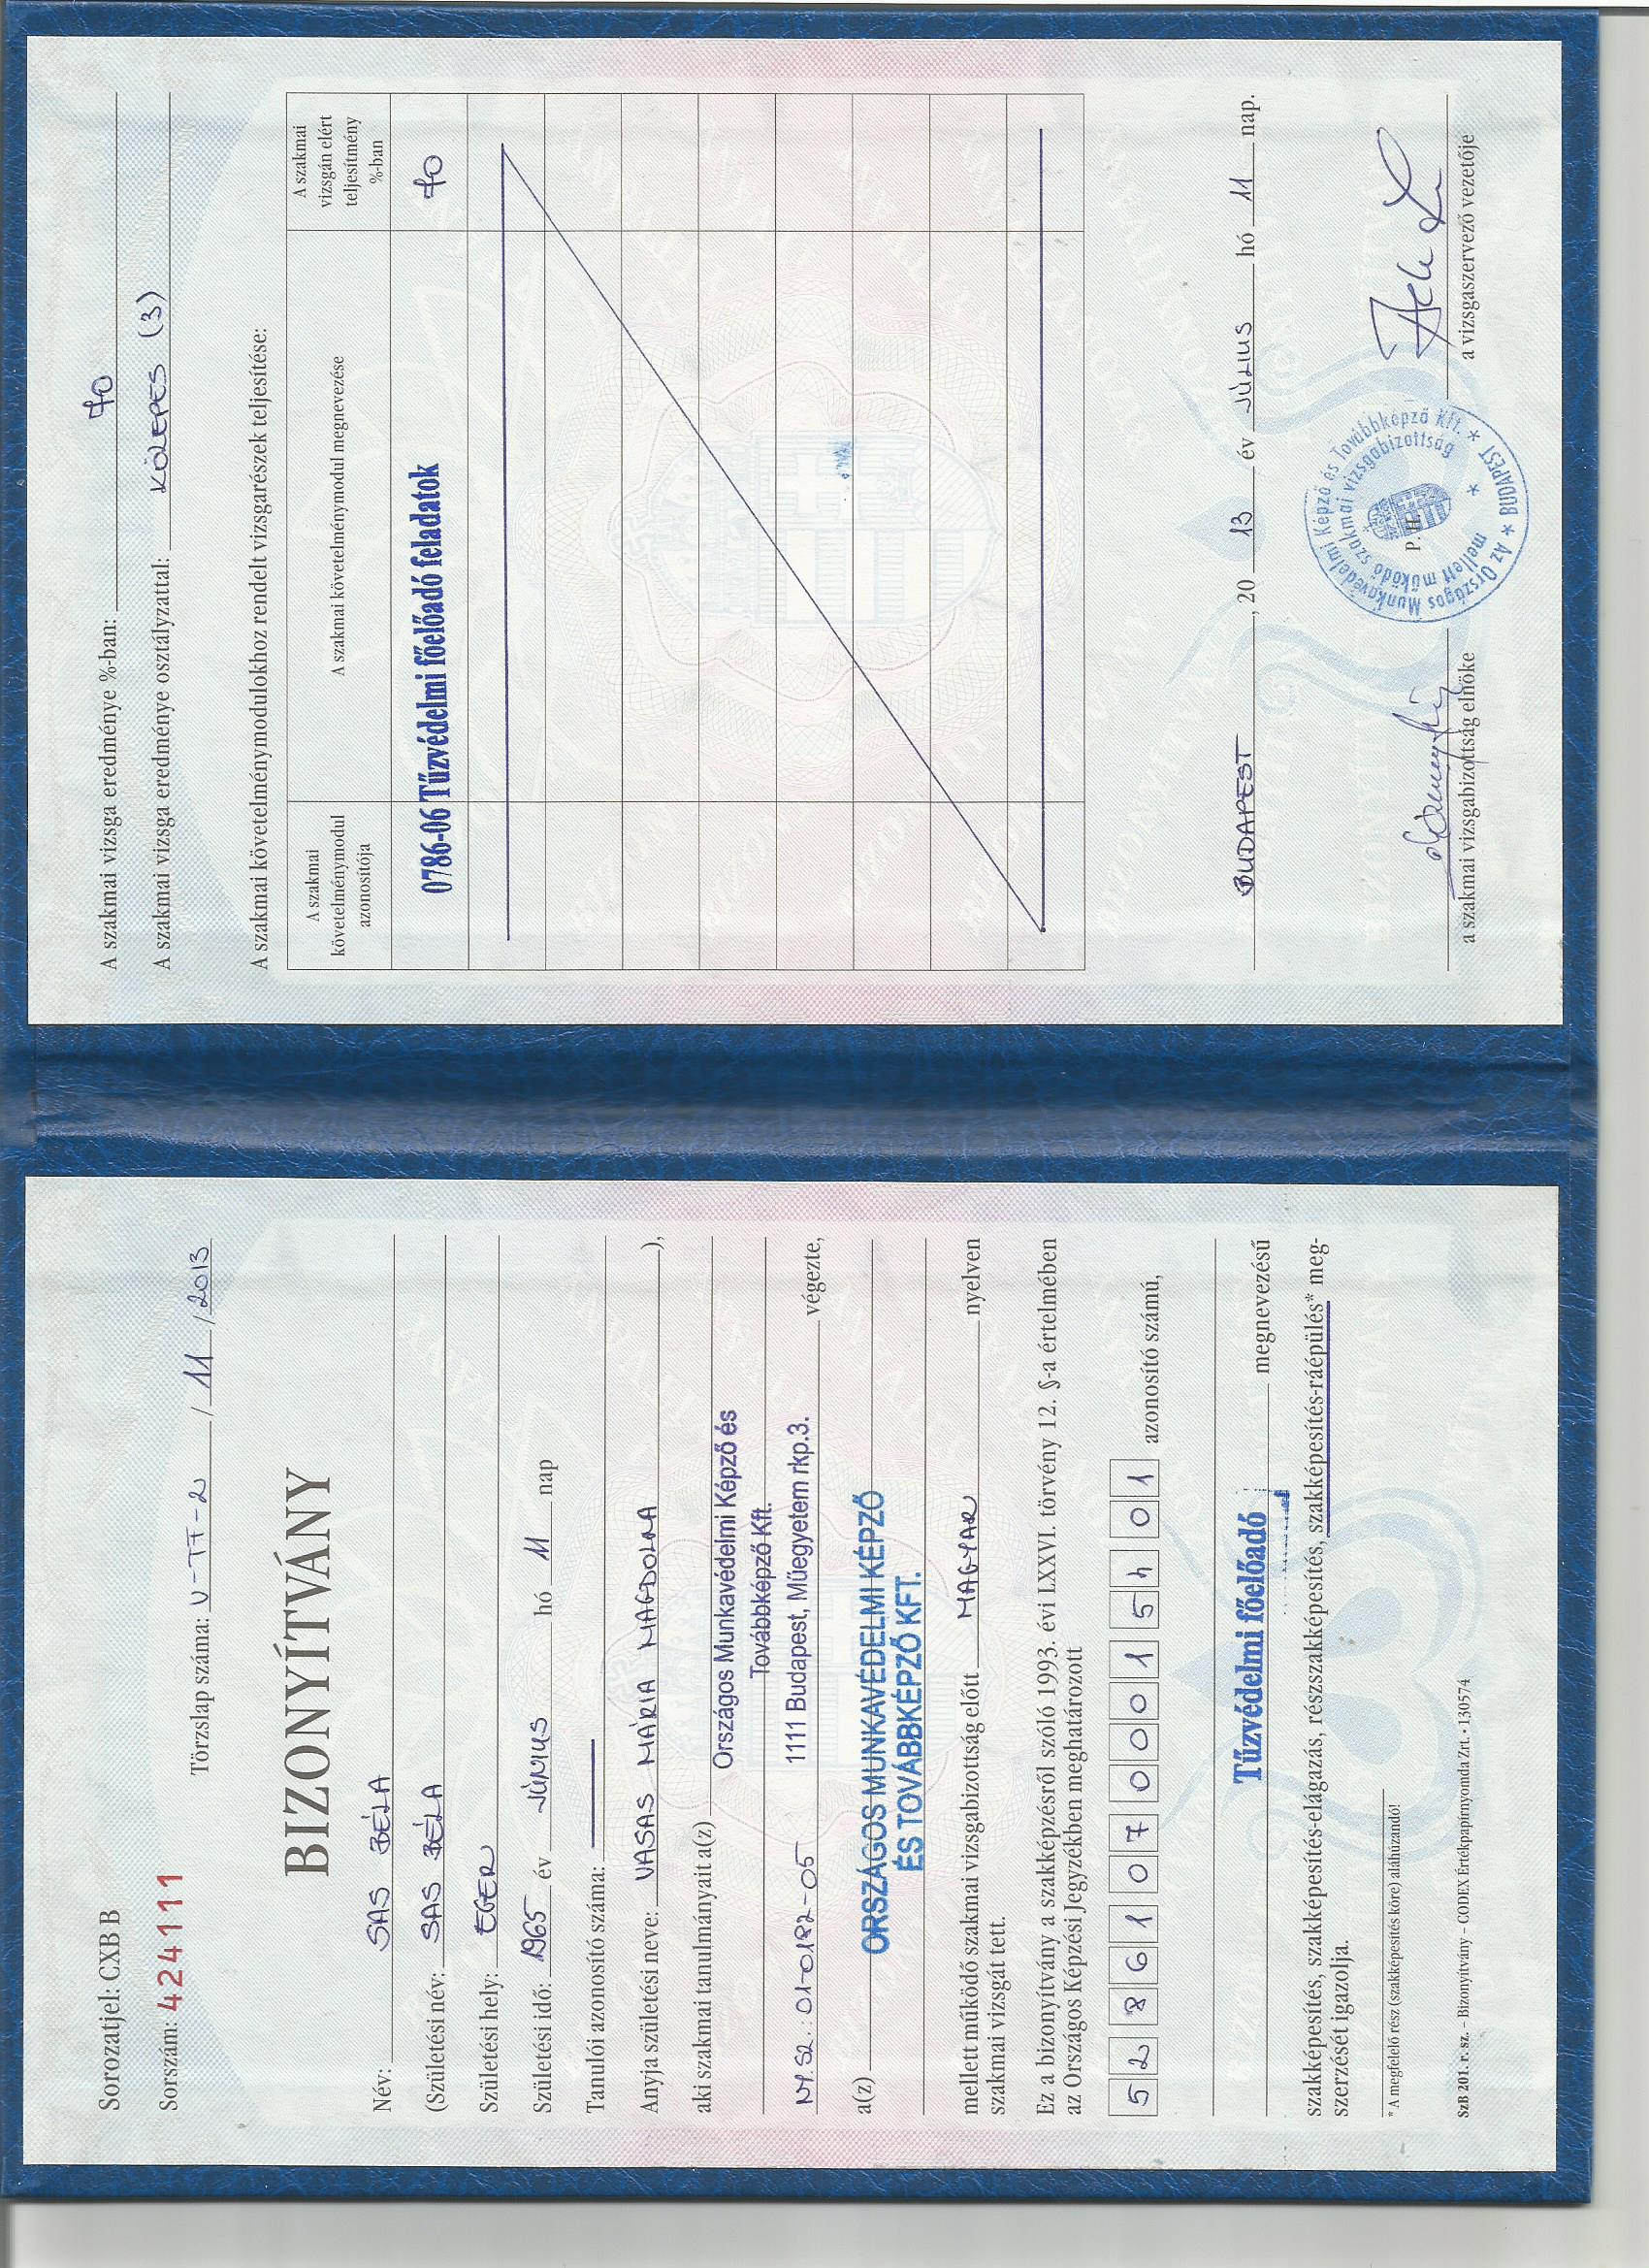 Sorozatjel: CXB B
Sorszám: 424111
Törzslap száma: V-TF-2 / 11 / 2013
BIZONYÍTVÁNY
Név: SAS BÉLA
(Születési név: SAS BÉLA
Születési hely: EGER
Születési idő: 1965 év JÚNIUS hó 11 nap
Tanulói azonosító száma:
Anyja születési neve: VASAS MÁRIA MAGDOLNA ),
aki szakmai tanulmányait a(z) Országos Munkavédelmi Képző és
Továbbképző Kft.
NY.SZ.: 01-0182-05 1111 Budapest, Műegyetem rkp.3. végezte,
a(z) ORSZÁGOS MUNKAVÉDELMI KÉPZŐ
ÉS TOVÁBBKÉPZŐ KFT.
mellett működő szakmai vizsgabizottság előtt MAGYAR nyelven
szakmai vizsgát tett.
Ez a bizonyítvány a szakképzésről szóló 1993. évi LXXVI. törvény 12. §-a értelmében
az Országos Képzési Jegyzékben meghatározott
5 2 8 6 1 0 7 0 0 0 1 5 4 0 1 azonosító számú,
Tűzvédelmi főelőadó megnevezésű
szakképesítés, szakképesítés-elágazás, részszakképesítés, szakképesítés-ráépülés* meg-
szerzését igazolja.
* A megfelelő rész (szakképesítés köre) aláhúzandó!
SzB 201. r. sz. – Bizonyítvány – CODEX Értékpapírnyomda Zrt. • 130574
A szakmai vizsga eredménye %-ban: 70
A szakmai vizsga eredménye osztályzattal: KÖZEPES (3)
A szakmai követelménymodulokhoz rendelt vizsgarészek teljesítése:
A szakmai
követelménymodul
azonosítója
A szakmai követelménymodul megnevezése
A szakmai
vizsgán elért
teljesítmény
%-ban
0786-06 Tűzvédelmi főelőadó feladatok 70
BUDAPEST, 20 13 év JÚLIUS hó 11 nap.
P. H.
Az Országos Munkavédelmi Képző és Továbbképző Kft. * BUDAPEST *
mellett működő szakmai vizsgabizottság *
a szakmai vizsgabizottság elnöke
a vizsgaszervező vezetője